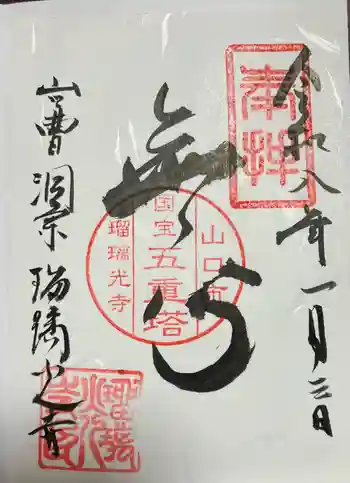 奉拝
令和八年一月三日
山口市
国宝
五重塔
瑠璃光寺
曹洞宗瑠璃光寺